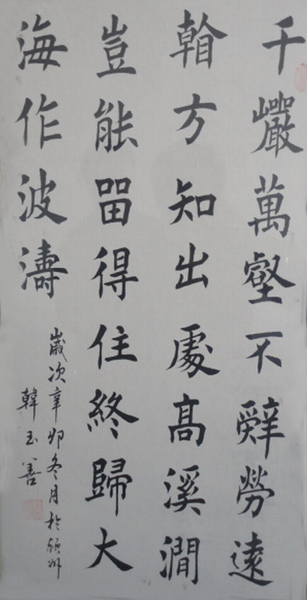 千巖萬壑不辭勞遠
看方知出處高溪澗
豈能留得住終歸大
海作波濤
歲次辛卯冬月於
韓玉善